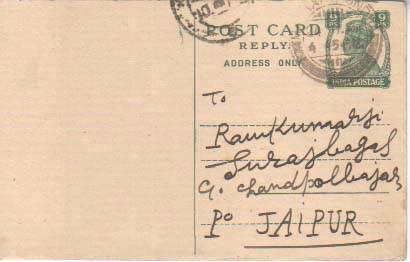 POST CARD
REPLY.
ADDRESS ONLY
9 9
PS PS
INDIA POSTAGE
To
Ramkumarji
Surajbagas
C. Chandpolbajar
Po JAIPUR